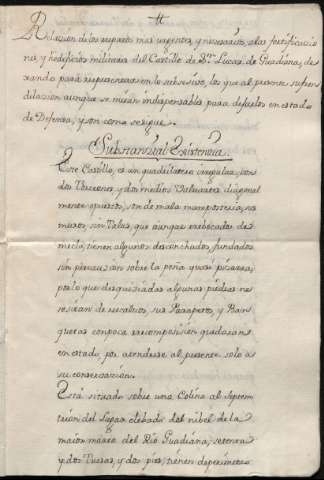 Relacion de los reparos mas urgentes, y necesarios a las fortificacio
nes, y hedificios militares del Castillo de Sn. Lucar de Guadiana, de
xando para representarse en lo subcesivo, los que al presente sufren
dilacion aunque se miran indispensables para defuelos en estado
de Defensa, y son como se sigue.
Substancial Existencia
Este Castillo, es un quadrilatero irregular, con
dos Torreones, y dos medios Valuartes diagonal
mente opuestos, son de mala mamposteria, su
muros, sin Talus, que aunque rebocados de
mezcla, tienen algunos desconchados, fundados
sin precaucion sobre la peña quasi pizarra,
por lo que desquisiadas algunas piedras ne
sesitan de recalsos, sus Parapetos, y Ban
quetas con poca recomposicion quedaran
en estado, por atenderse al presente solo a
su conservacion.
Está situado sobre una Colina al Septem
trion del Lugar elebado del nibel de la
maior marea del Rio Guadiana, setenta
y dos Tuesas, y dos pies, tienen deperimetro